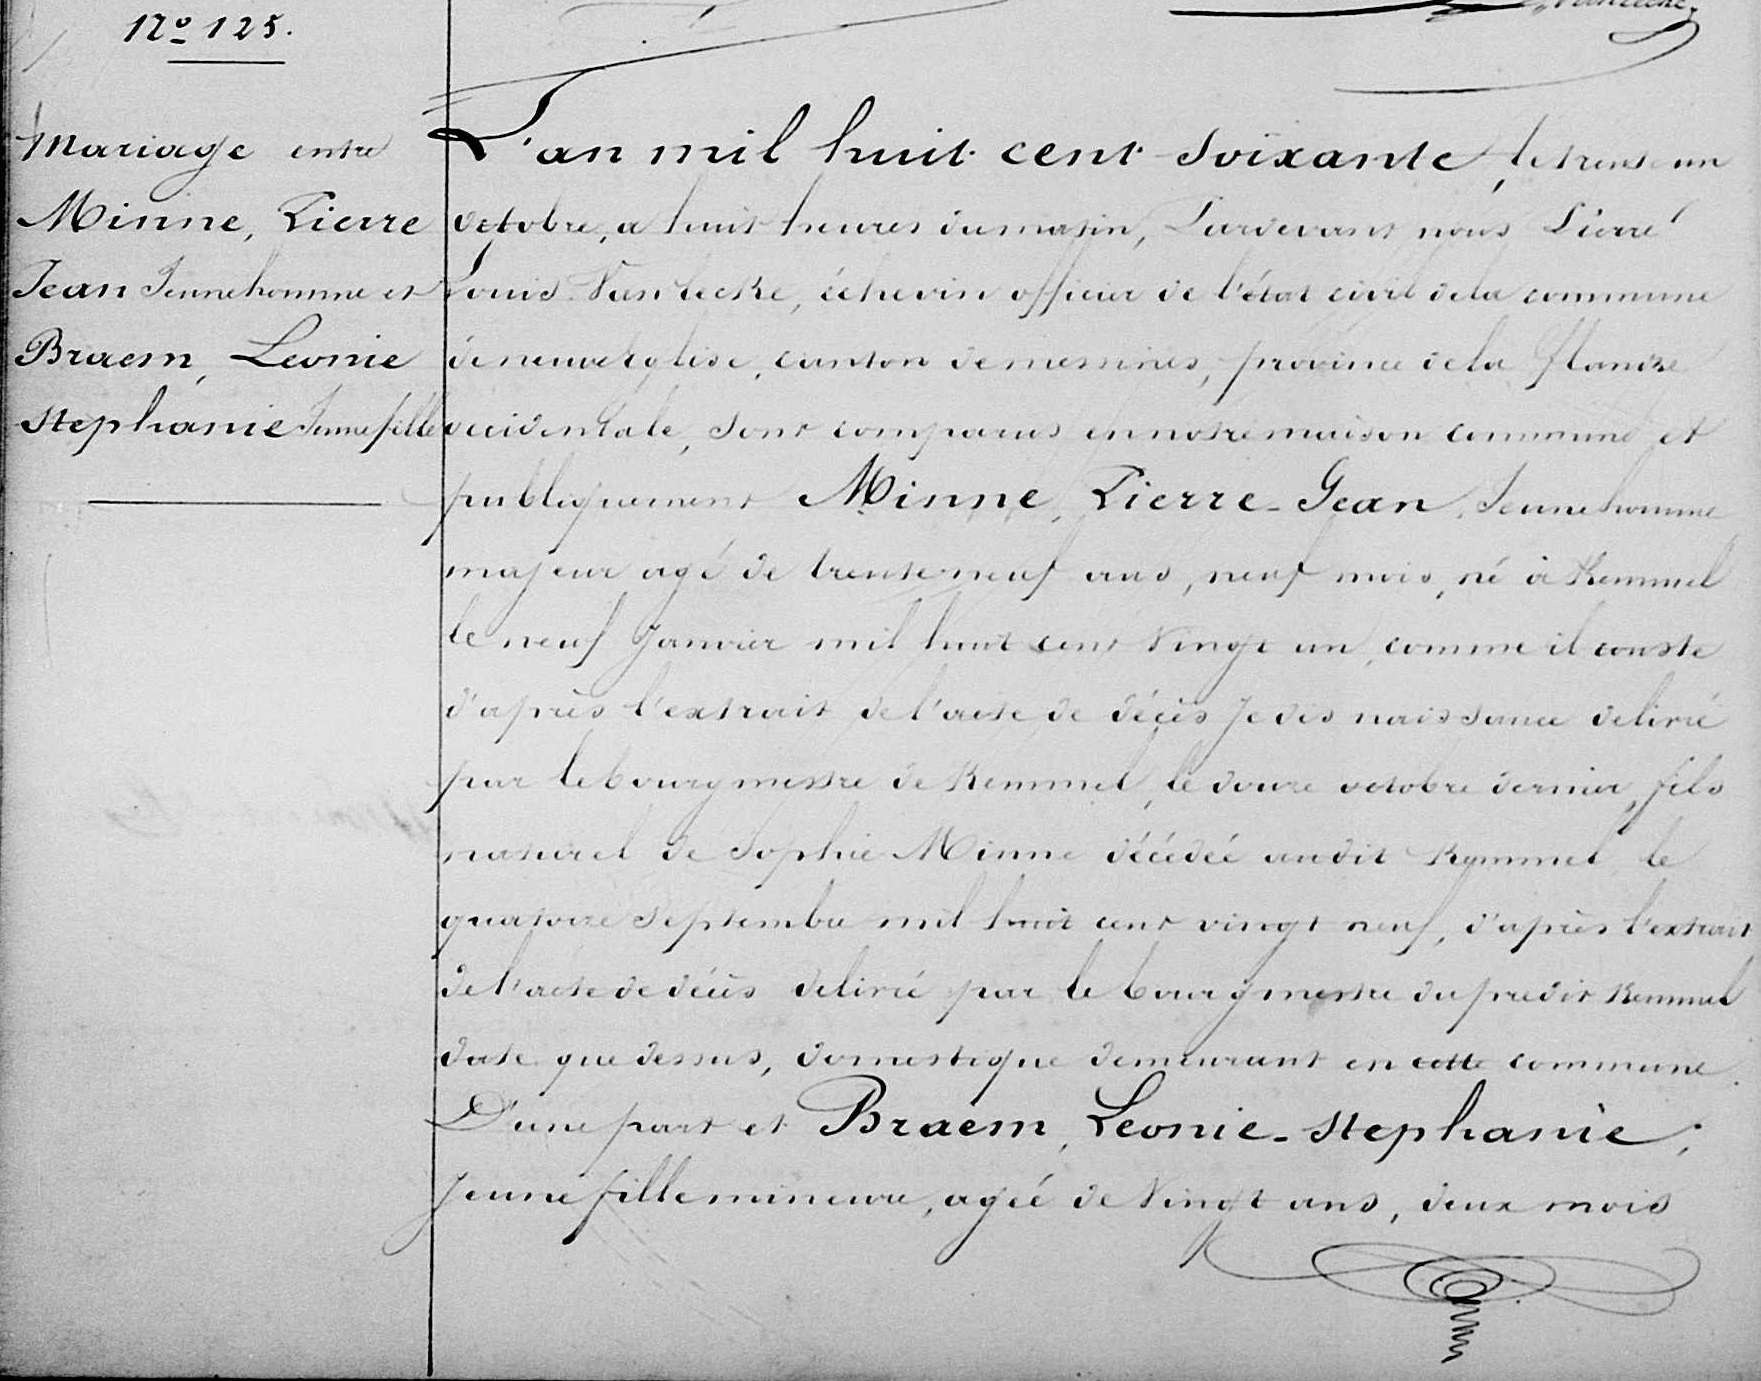 Nº 125.
Mariage entre
Minne, Pierre
Jean Jeune homme et
Braem, Leonie
Stephanie Jeune fille
L'an mil huit cent soixante, le trente un
octobre, a huit heures du matin, Pardevant nous Pierre
Louis Vanlecke, échevin officier de l'état civil de la commune
de neuve église, canton de messines, province de la flandre
occidentale, sont comparus en notre maison commune et
publiquement Minne, Pierre-Jean, Jeune homme
majeur agé de trente neuf ans, neuf mois, né à Kemmel
le neuf Janvier mil huit cent vingt un, comme il conste
d'après l'extrait de l'acte de décès Je dis naissance delivré
par le bourgmestre de Kemmel, le douze octobre dernier, fils
naturel de Sophie Minne décédée audit Kemmel le
quatorze Septembre mil huit cent vingt neuf, d'après l'extrait
de l'acte de décès delivré par le bourgmestre du predit Kemmel
date que dessus, domestique demeurant en cette commune.
D'une part et Braem, Leonie-Stephanie,
Jeune fille mineure, agée de vingt ans, deux mois